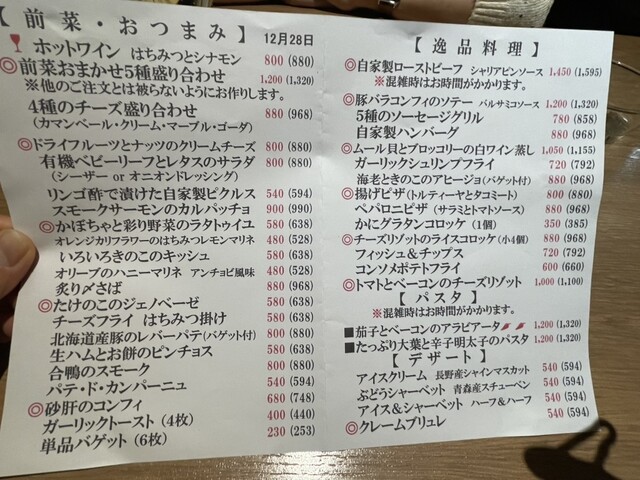 【前菜・おつまみ】 12月28日
ホットワイン はちみつとシナモン 800 (880)
◎前菜おまかせ5種盛り合わせ 1,200 (1,320)
※他のご注文とは被らないようにお作りします。
4種のチーズ盛り合わせ 880 (968)
(カマンベール・クリーム・マーブル・ゴーダ)
◎ドライフルーツとナッツのクリームチーズ 800 (880)
有機ベビーリーフとレタスのサラダ 800 (880)
(シーザー or オニオンドレッシング)
リンゴ酢で漬けた自家製ピクルス 540 (594)
スモークサーモンのカルパッチョ 900 (990)
◎かぼちゃと彩り野菜のラタトゥイユ 580 (638)
オレンジカリフラワーのはちみつレモンマリネ 480 (528)
いろいろきのこのキッシュ 580 (638)
オリーブのハニーマリネ アンチョビ風味 480 (528)
炙り〆さば 880 (968)
◎たけのこのジェノベーゼ 580 (638)
チーズフライ はちみつ掛け 580 (638)
北海道産豚のレバーパテ(バゲット付) 800 (880)
生ハムとお餅のピンチョス 580 (638)
合鴨のスモーク 800 (880)
パテ・ド・カンパーニュ 540 (594)
◎砂肝のコンフィ 680 (748)
ガーリックトースト (4枚) 400 (440)
単品バゲット (6枚) 230 (253)
【逸品料理】
◎自家製ローストビーフ シャリアピンソース 1,450 (1,595)
※混雑時はお時間がかかります。
◎豚バラコンフィのソテー バルサミコソース 1,200 (1,320)
5種のソーセージグリル 780 (858)
自家製ハンバーグ 880 (968)
◎ムール貝とブロッコリーの白ワイン蒸し 1,050 (1,155)
ガーリックシュリンプフライ 720 (792)
海老ときのこのアヒージョ(バゲット付) 880 (968)
◎揚げピザ(トルティーヤとタコミート) 800 (880)
ペパロニピザ (サラミとトマトソース) 880 (968)
かにグラタンコロッケ (1個) 350 (385)
◎チーズリゾットのライスコロッケ (小4個) 880 (968)
フィッシュ&チップス 720 (792)
コンソメポテトフライ 600 (660)
◎トマトとベーコンのチーズリゾット 1,000 (1,100)
【パスタ】
※混雑時はお時間がかかります。
■茄子とベーコンのアラビアータ 1,200 (1,320)
■たっぷり大葉と辛子明太子のパスタ 1,200 (1,320)
【デザート】
アイスクリーム 長野産シャインマスカット 540 (594)
ぶどうシャーベット 青森産スチューベン 540 (594)
アイス&シャーベット ハーフ&ハーフ 540 (594)
◎クレームブリュレ 540 (594)